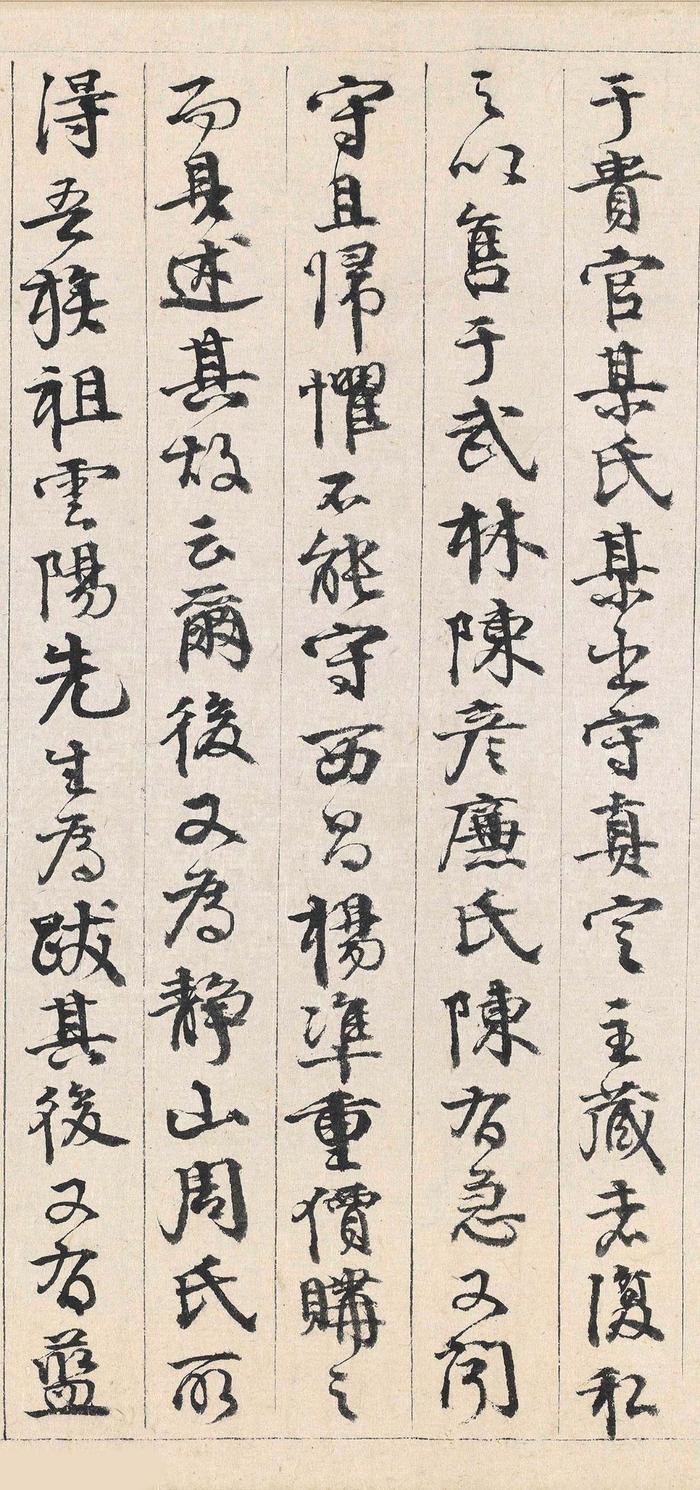 于貴官某氏某出守真定主藏者復私
之以售于武林陳彥廉氏陳有急又聞
守且歸懼不能守西昌楊準重價購之
而具述其故云爾後又為靜山周氏所
得吾族祖雲陽先生為跋其後又有藍